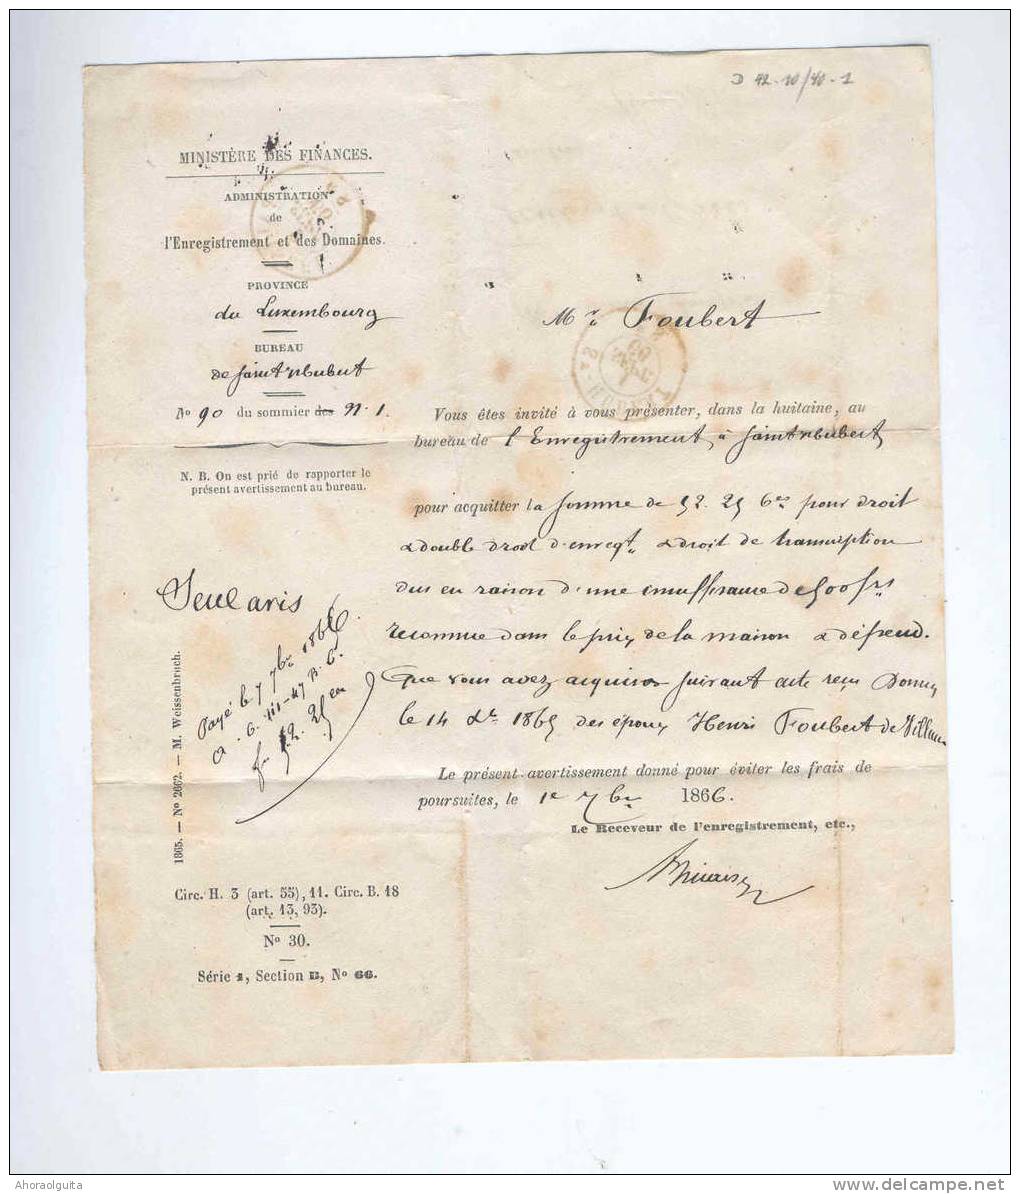 D 42-10/40-1
MINISTÈRE DES FINANCES.
ADMINISTRATION
de
l'Enregistrement et des Domaines.
PROVINCE
du Luxembourg
BUREAU
de Saint Hubert
No 90 du sommier des 91.1.
N. B. On est prié de rapporter le
présent avertissement au bureau.
Mr Foubert
ST-HUBERT
Vous êtes invité à vous présenter, dans la huitaine, au
bureau de l'Enregistrement à Saint Hubert
pour acquitter la somme de 52.25 Ces pour droit
& double droit d'enregt & droit de transcription
dus en raison d'une insuffisance de 500 frs
reconnue dans le prix de la maison & dépend.
que vous avez acquises suivant acte reçu
le 14 1865 des époux Henri Foubert de
Le présent avertissement donné pour éviter les frais de
poursuites, le 1e 7bre 1866.
Le Receveur de l'enregistrement, etc.,
Seul avis
Payé le 7 7bre 1866
52.25
1865. — No 2662. — M. Weissenbruch.
Circ. H. 3 (art. 55), 11. Circ. B. 18
(art. 13, 93).
No 30.
Série 1, Section B, No 66.
Ahoraolguita
delcampe.net